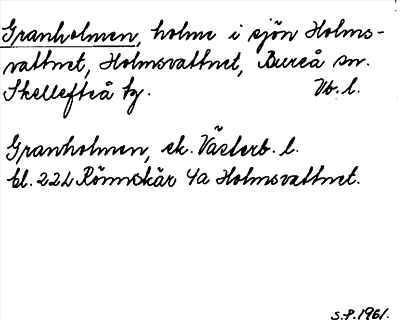 Granholmen, holme i sjön Holms-
vattnet, Holmsvattnet, Bureå sn.
Skellefteå tg. Vb. l.
Granholmen, ek. Västerb. l.
bl. 22L Rönnskär 4a Holmsvattnet.
S.P. 1961.